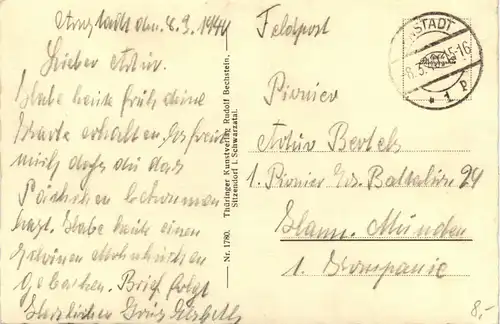 Arnstadt den 8.3.1944
Lieber Artur.
Habe heute früh deine
Karte erhalten. Es freut
mich dass du das
Päckchen bekommen
hast. Habe heute einen
kleinen Mohnkuchen
gebacken. Brief folgt
Herzlichen Gruss Elsbeth
Nr. 1780. Thüringer Kunstverlag Rudolf Bechstein,
Sitzendorf i. Schwarzatal.
Feldpost
ARNSTADT
8.3. 15-16
* 1 p
Pionier
Artur Bertels
1. Pionier Ers. Battalion 29
Hann. Münden
1. Kompanie
8,-